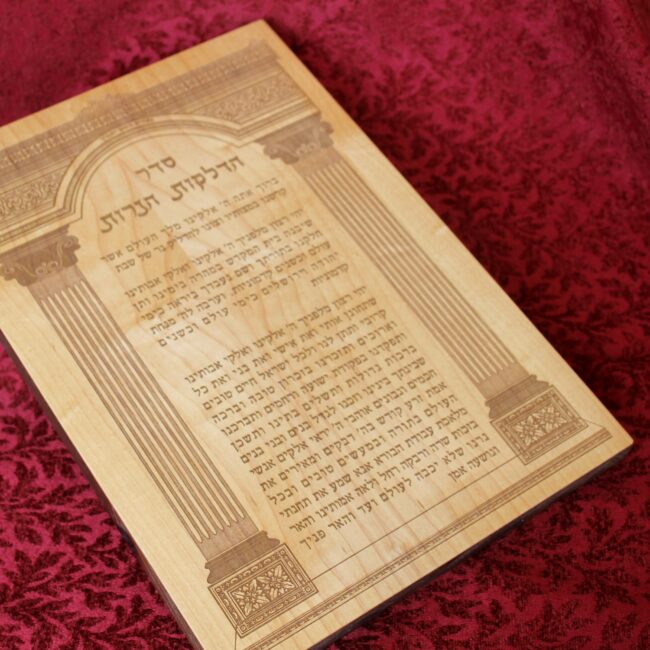 סדר
הדלקות הנרות
ברוך אתה ה' אלקינו מלך העולם אשר
קדשנו במצותיו וצונו להדליק נר של שבת
יהי רצון מלפניך ה' אלקינו ואלקי אבותינו
שיבנה בית המקדש במהרה בימינו ותן
חלקנו בתורתך ושם נעבדך ביראה כימי
עולם וכשנים קדמוניות וערבה לה' מנחת
יהודה וירושלים כימי עולם וכשנים
קדמניות
יהי רצון מלפניך ה' אלקינו ואלקי אבותינו
שתחונן אותי ואת אישי ואת בני ואת כל
קרובי ותתן לנו ולכל ישראל חיים טובים
וארוכים ותזכרנו בזכרון טובה וברכה
ותפקדנו בפקודת ישועה ורחמים ותברכנו
ברכות גדולות ותשלים בתינו ותשכן
שכינתך בינינו וזכנו לגדל בנים ובני בנים
חכמים ונבונים אוהבי ה' יראי אלקים אנשי
אמת זרע קודש בה' דבקים ומאירים את
העולם בתורה ובמעשים טובים ובכל
מלאכת עבודת הבורא אנא שמע את תחנתי
בזכות שרה ורבקה רחל ולאה אמותינו והאר
נרנו שלא יכבה לעולם ועד והאר פניך
ונושעה אמן